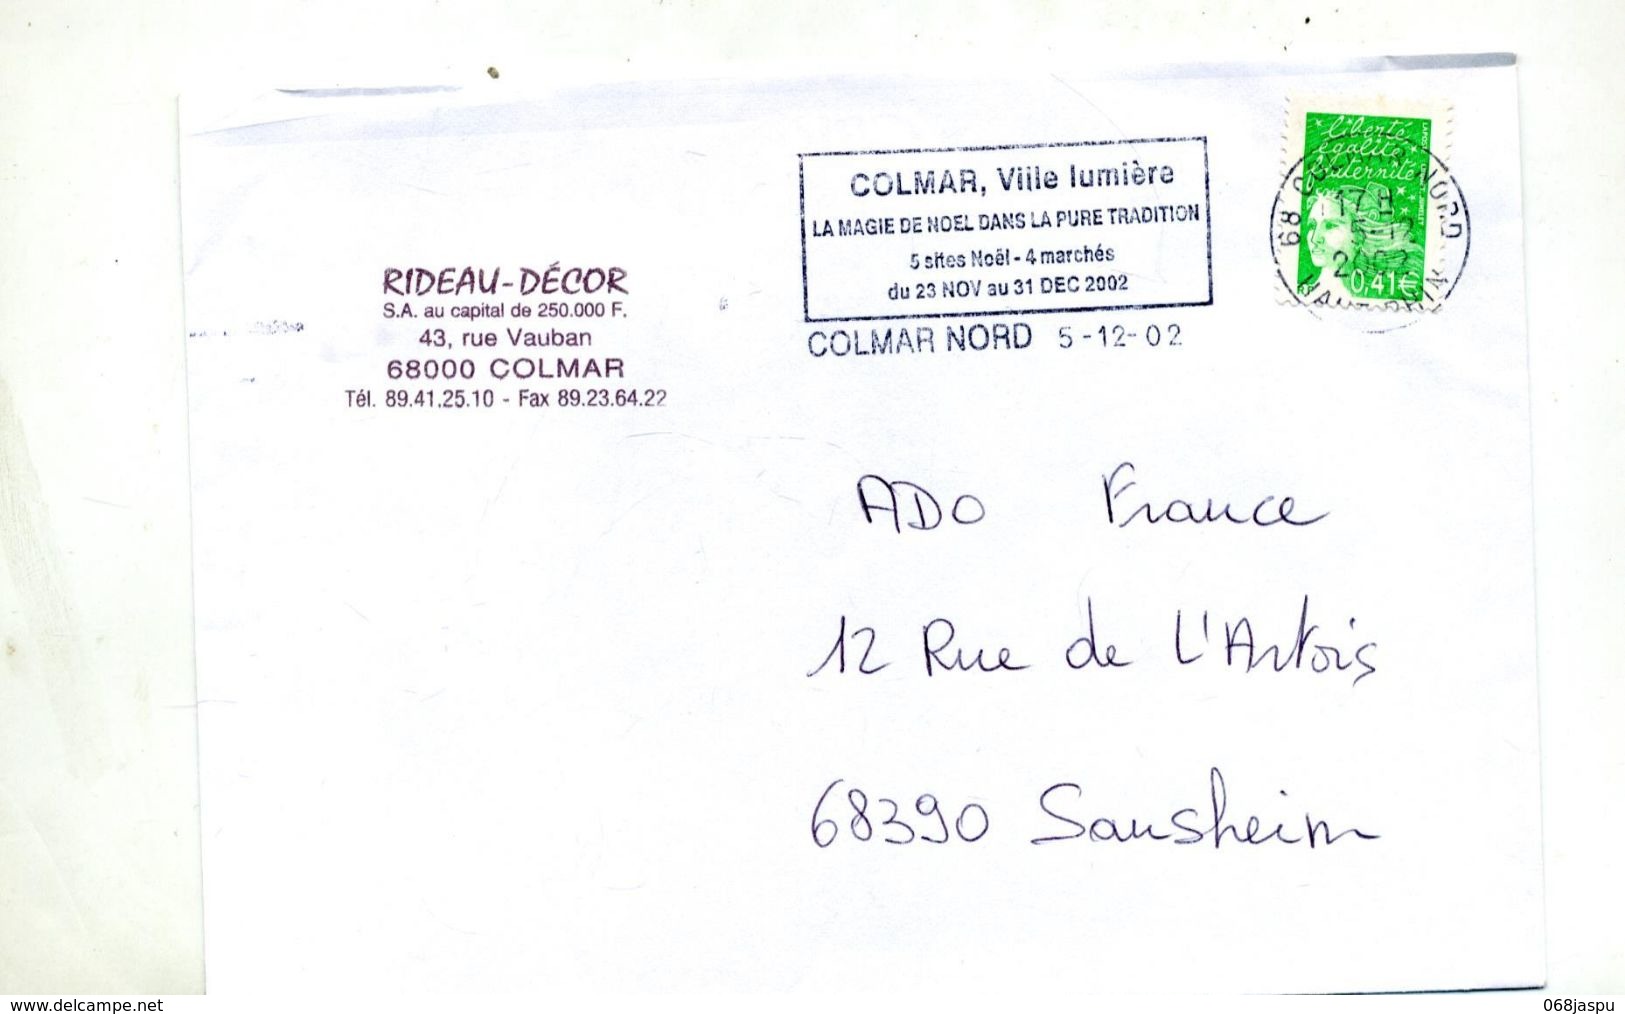 RIDEAU-DÉCOR
S.A. au capital de 250.000 F.
43, rue Vauban
68000 COLMAR
Tél. 89.41.25.10 - Fax 89.23.64.22
COLMAR, Ville lumière
LA MAGIE DE NOEL DANS LA PURE TRADITION
5 sites Noël - 4 marchés
du 23 NOV au 31 DEC 2002
COLMAR NORD 5-12-02
liberté
égalité
fraternité
0,41€
68 COLMAR NORD
17 H
5-12
2002
HAUT-RHIN
ADO France
12 Rue de L'Artois
68390 Sausheim
www.delcampe.net
068jaspu